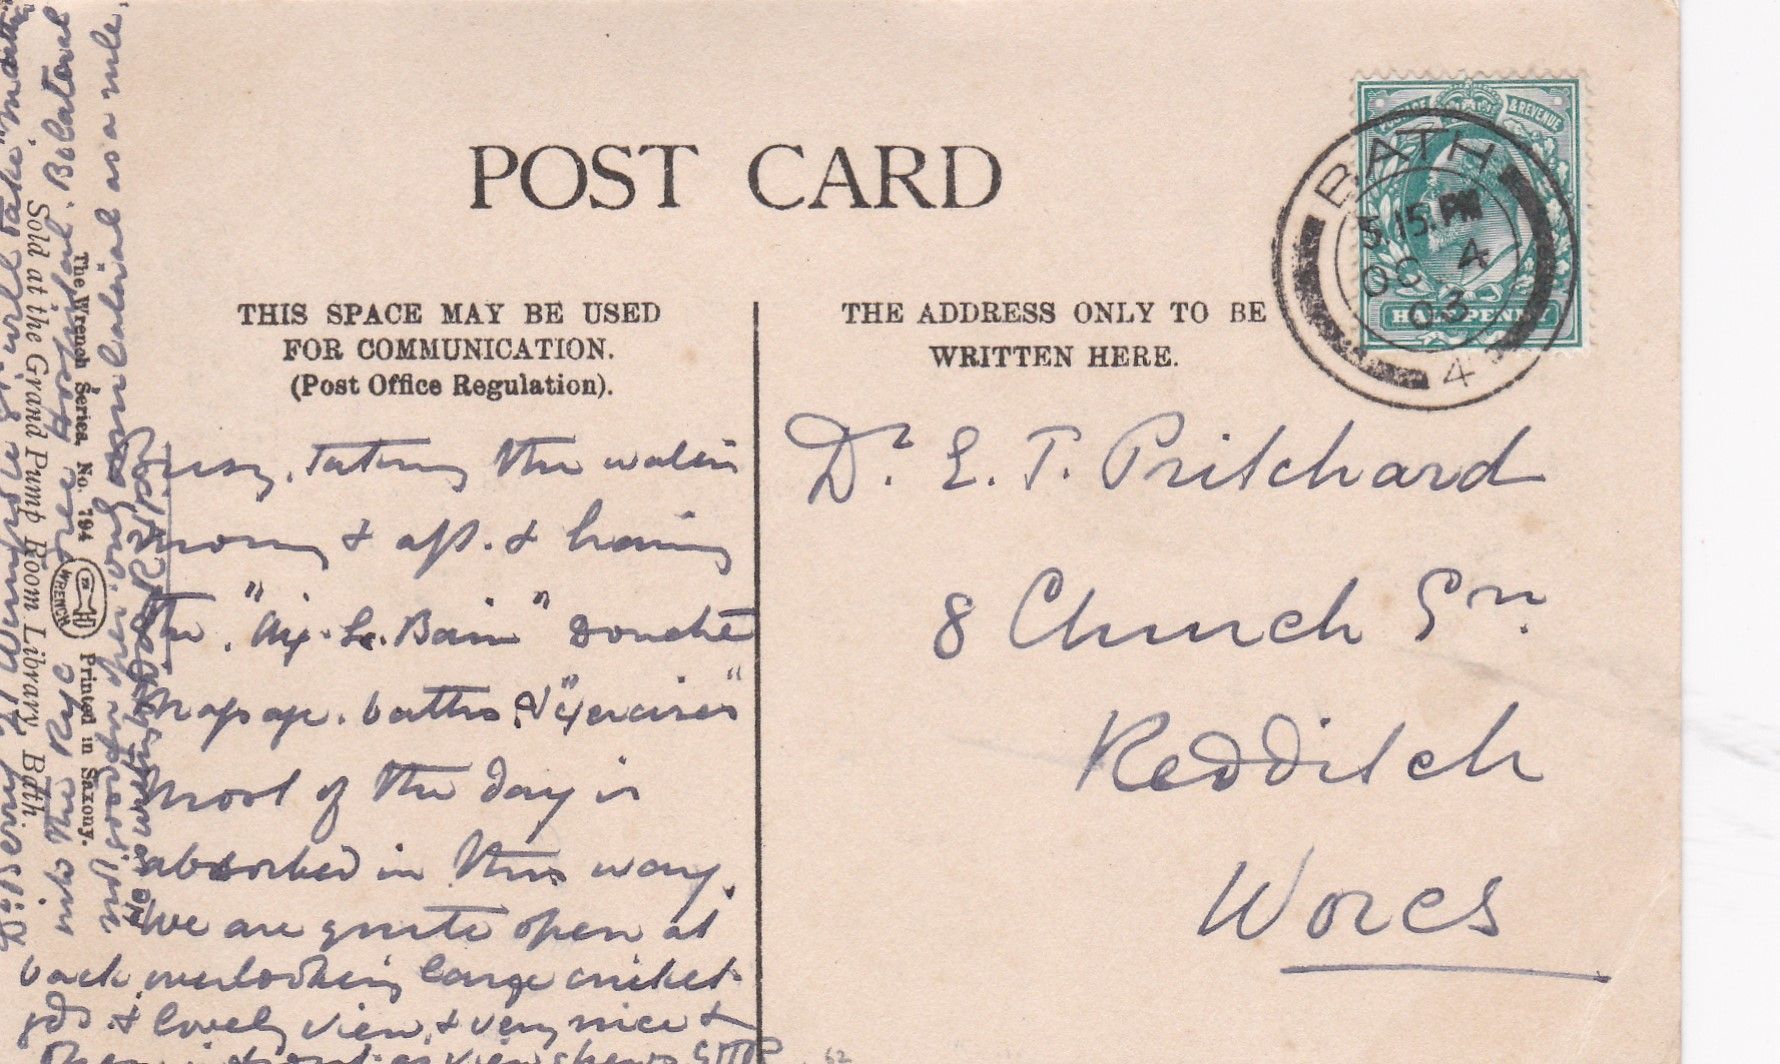 POST CARD
POSTAGE & REVENUE
HALFPENNY
BATH
5.15.PM
OC 4
03
4
THIS SPACE MAY BE USED
FOR COMMUNICATION.
(Post Office Regulation).
THE ADDRESS ONLY TO BE
WRITTEN HERE.
Dr. E. T. Pritchard
8 Church Grn
Redditch
Worcs
Busy, taking the waters
morng & aft. & having
the "Aix-Le-Bain" Douche
Massage. baths & "Exercises"
Most of the day is
absorbed in this way.
We are quite open at
back overlooking large cricket
gds. & lovely view, & very nice &
open in front as view shews
Sold at the Grand Pump Room Library, Bath.
The Wrench Series, No. 794
WRENCH
Printed in Saxony.
will take
into the Eye Hospital. Bilateral
as a rule.
62